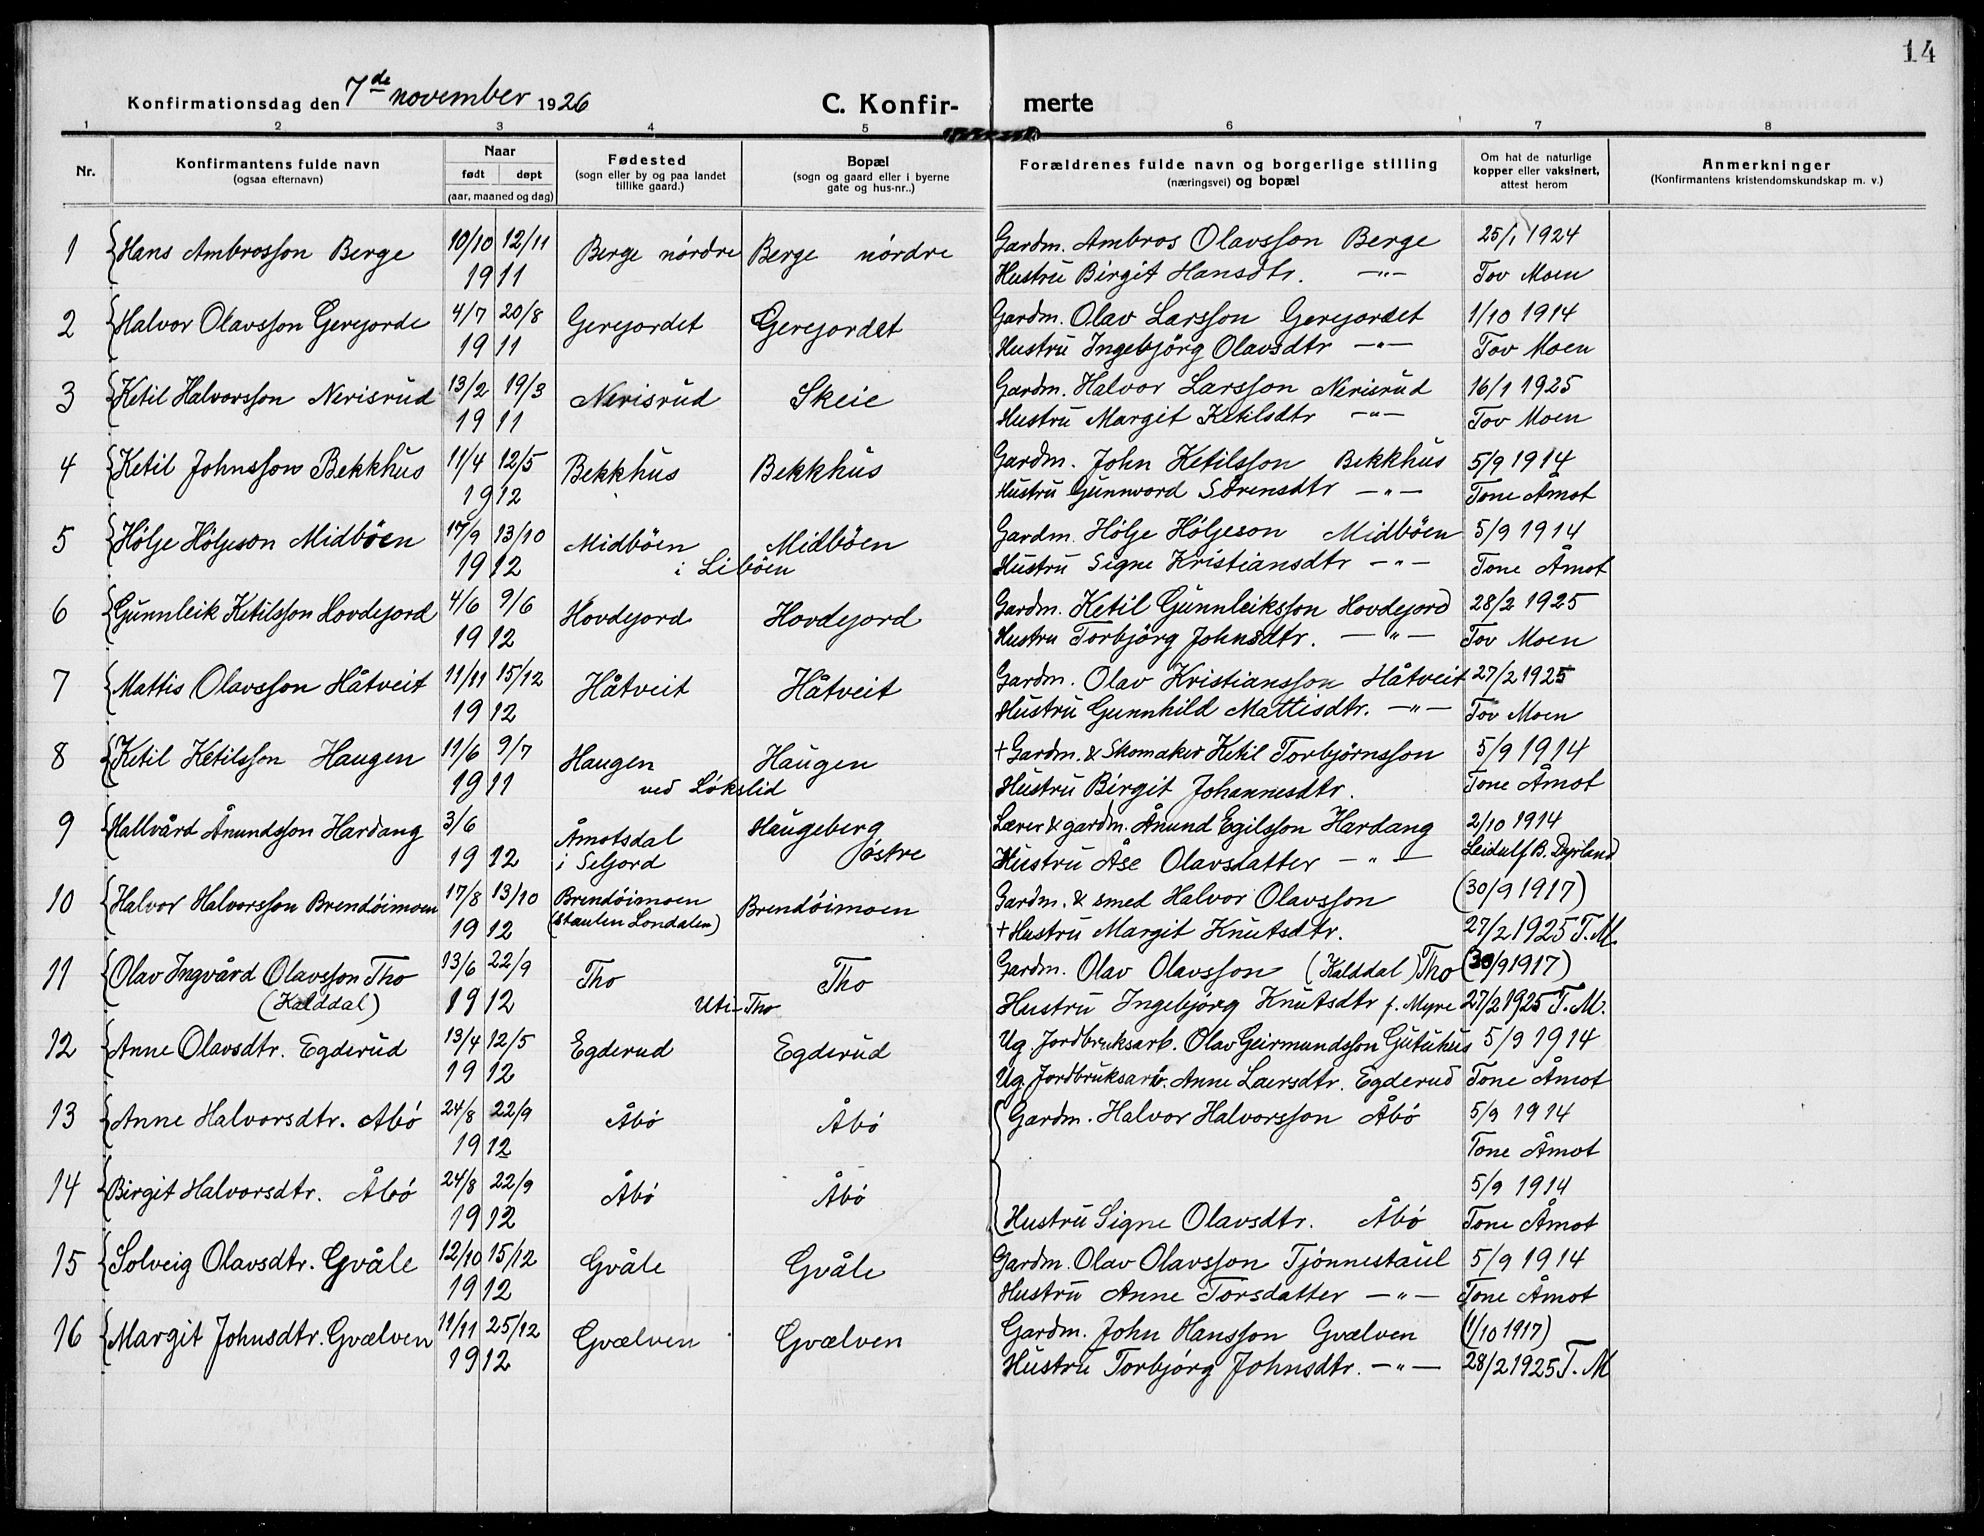 14
Konfirmationsdag den 7de november 1926 C. Konfir- merte
1 2 3 4 5 6 7 8
Nr. Konfirmantens fulde navn (ogsaa efternavn) Naar født døpt (aar, maaned og dag) Fødested (sogn eller by og paa landet tillike gaard.) Bopæl (sogn og gaard eller i byerne gate og hus-nr..) Forældrenes fulde navn og borgerlige stilling (næringsvei) og bopæl Om hat de naturlige kopper eller vaksinert, attest herom Anmerkninger (Konfirmantens kristendomskundskap m. v.)
1 Hans Ambrosson Berge 10/10 12/11 Berge nórdre Berge nórdre Gardm. Ambros Olavsson Berge 25/1 1924
1911 Hustru Birgit Hansdtr. —"— Tov Moen
2 Halvor Olavsson Gerejorde 4/7 20/8 Gerejordet Gerejordet Gardm. Olav Larsson Gerejordet 1/10 1914
1911 Hustru Ingebjörg Olavsdtr —"— Tov Moen
3 Ketil Halvorsson Nerisrud 13/2 19/3 Nerisrud Skeie Gardm. Halvor Larsson Nerisrud 16/1 1925
1911 Hustru Margit Ketilsdtr —"— Tov Moen
4 Ketil Johnsson Bekkhus 11/4 12/5 Bekkhus Bekkhus Gardm. John Ketilsson Bekkhus 5/9 1914
1912 Hustru Gunnvord Sörensdtr —"— Tone Åmot
5 Hölje Höljeson Midböen 17/9 13/10 Midböen Midböen Gardm. Hölje Höljeson Midböen 5/9 1914
1912 i Liböen Hustru Signe Kristiansdtr —"— Tone Åmot
6 Gunnleik Ketilsson Hovdejord 4/6 9/6 Hovdejord Hovdejord Gardm. Ketil Gunnleiksson Hovdejord 28/2 1925
1912 Hustru Torbjörg Johnsdtr. —"— Tov Moen
7 Mattis Olavsson Håtveit 11/11 15/12 Håtveit Håtveit Gardm. Olav Kristiansson Håtveit 27/2 1925
1912 Hustru Gunnhild Mattisdtr. —"— Tov Moen
8 Ketil Ketilsson Haugen 11/6 9/7 Haugen Haugen + Gardm. & Skomaker Ketil Torbjörnsson 5/9 1914
1911 ved Lökslid Hustru Birgit Johannesdtr. Tone Åmot
9 Hallvård Ånundsson Hardang 3/6 Åmotsdal Haugeberg Lærer & gardm. Ånund Egilsson Hardang 2/10 1914
1912 i Seljord östre Hustru Åse Olavsdatter —"— Leidulf B. Dyrland
10 Halvor Halvorsson Brendöimoen 17/8 13/10 Brendöimoen Brendöimoen Gardm. & smed Halvor Olavsson (30/9 1917)
1912 (Staulen Londalen) + Hustru Margit Knutsdtr. 27/2 1925 T.M.
11 Olav Ingvård Olavsson Tho 13/6 22/9 Tho Tho Gardm. Olav Olavsson (Kalddal) Tho (30/9 1917)
(Kalddal) 1912 Uti-Tho Hustru Ingebjörg Knutsdtr f. Myre 27/2 1925 T.M.
12 Anne Olavsdtr. Egderud 13/4 12/5 Egderud Egderud Ug. Jordbruksarb. Olav Geirmundsson Gutuhus 5/9 1914
1912 Ug. Jordbruksarb. Anne Laersdtr. Egderud Tone Åmot
13 Anne Halvorsdtr. Åbó 24/8 22/9 Åbó Åbó Gardm. Halvor Halvorsson Åbó 5/9 1914
1912 Tone Åmot
14 Birgit Halvorsdtr. Åbó 24/8 22/9 Åbó Åbó 5/9 1914
1912 Hustru Signe Olavsdtr. Åbó Tone Åmot
15 Solveig Olavsdtr. Gvåle 12/10 15/12 Gvåle Gvåle Gardm. Olav Olavsson Tjönnestaul 5/9 1914
1912 Hustru Anne Torsdatter —"— Tone Åmot
16 Margit Johnsdtr. Gvælven 11/11 25/12 Gvælven Gvælven Gardm. John Hansson Gvælven (1/10 1917)
1912 Hustru Torbjörg Johnsdtr. —"— 28/2 1925 T.M